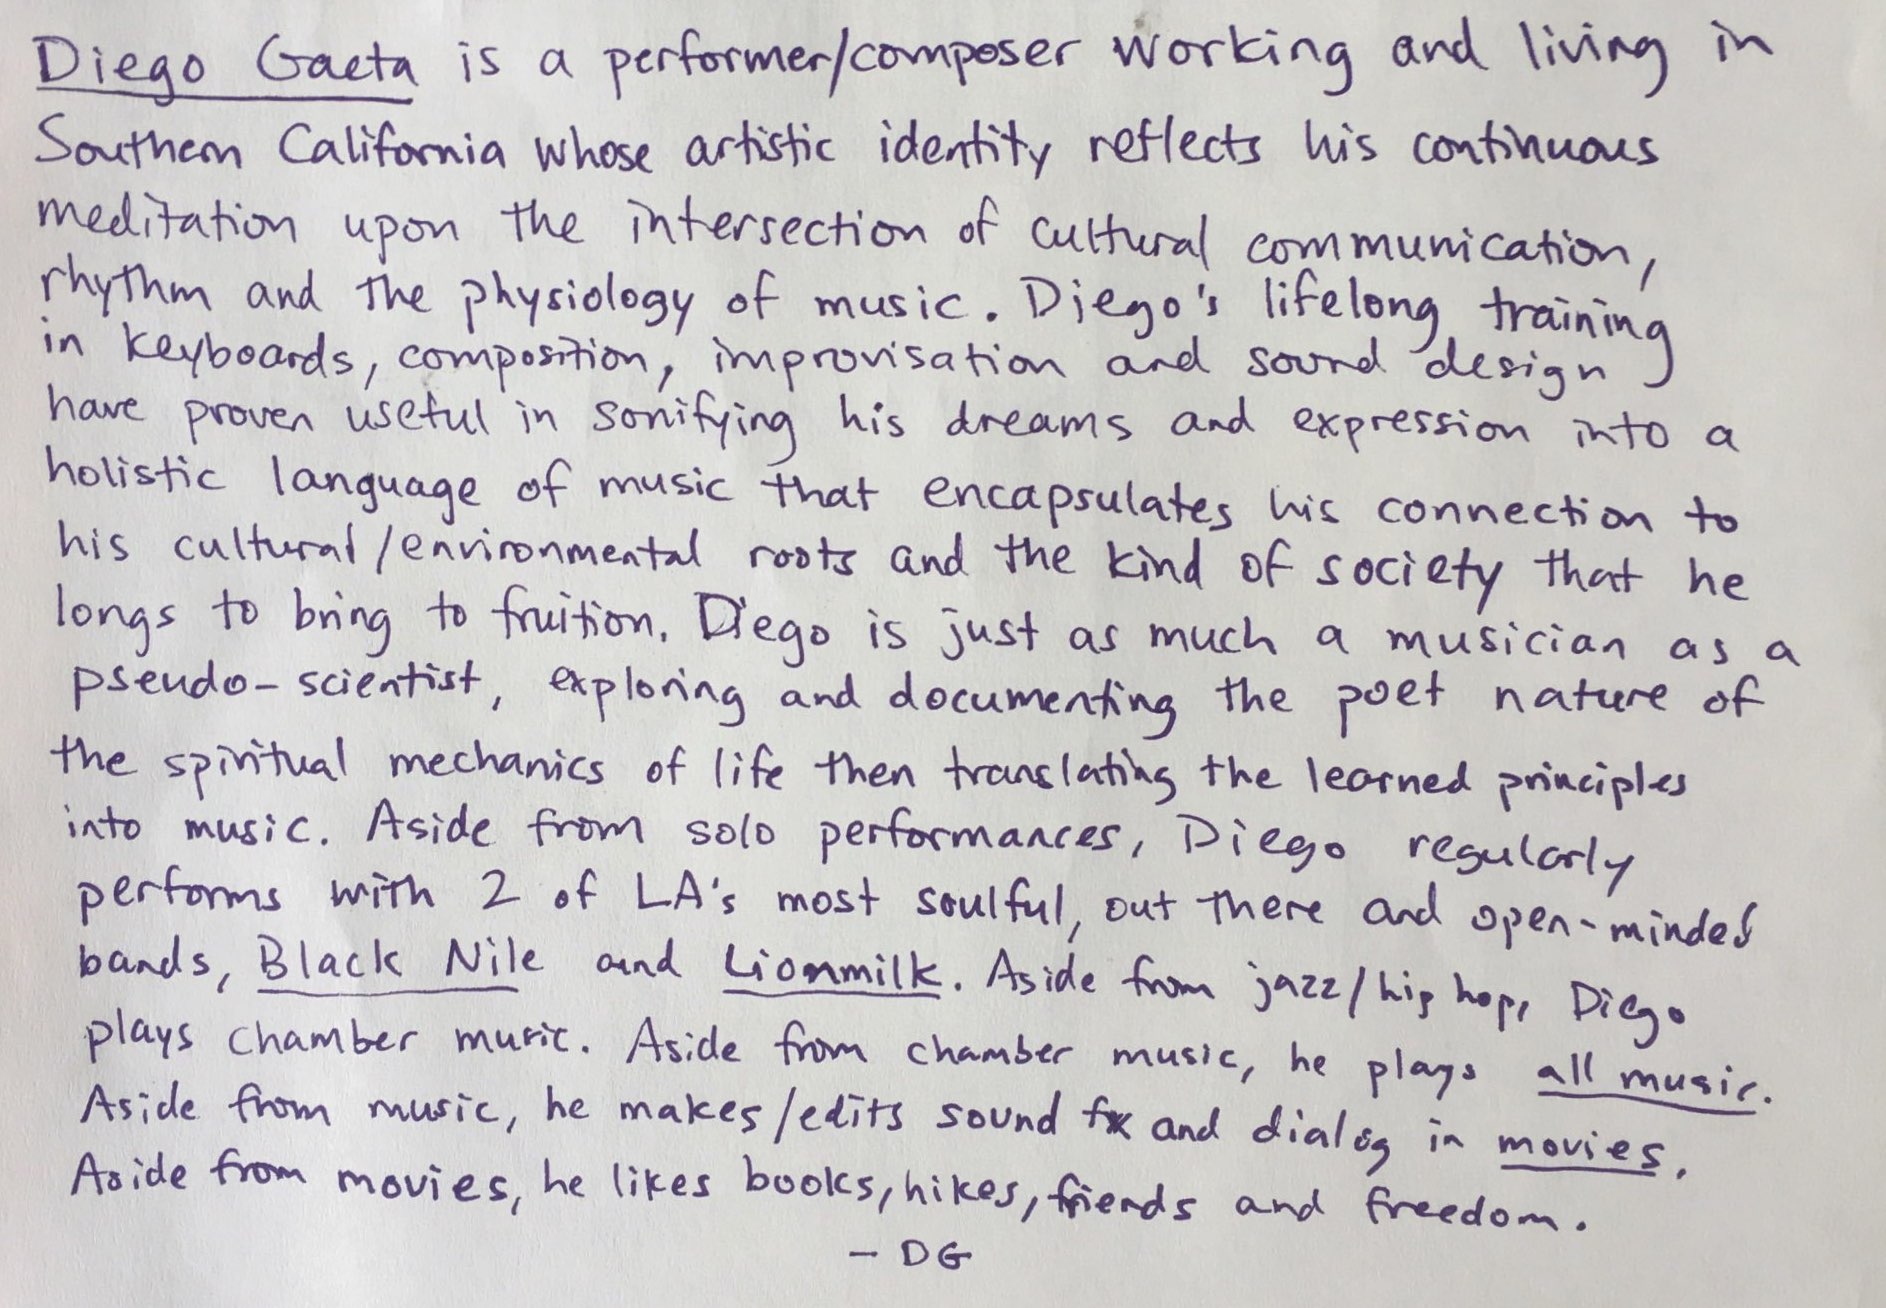 Diego Gaeta is a performer/composer working and living in
Southern California whose artistic identity reflects his continuous
meditation upon the intersection of cultural communication,
rhythm and the physiology of music. Diego's lifelong training
in keyboards, composition, improvisation and sound design
have proven useful in sonifying his dreams and expression into a
holistic language of music that encapsulates his connection to
his cultural/environmental roots and the kind of society that he
longs to bring to fruition. Diego is just as much a musician as a
pseudo-scientist, exploring and documenting the poet nature of
the spiritual mechanics of life then translating the learned principles
into music. Aside from solo performances, Diego regularly
performs with 2 of LA's most soulful, out there and open-minded
bands, Black Nile and Lionmilk. Aside from jazz/hip hop, Diego
plays chamber music. Aside from chamber music, he plays all music.
Aside from music, he makes/edits sound fx and dialog in movies.
Aside from movies, he likes books, hikes, friends and freedom.
- DG